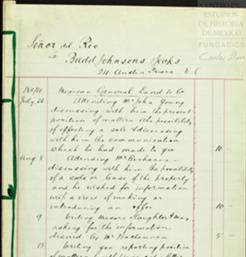 CENTRO DE
ESTUDIOS
DE HISTORIA
DE MEXICO
FUNDACIÓN
Carlos Slim
Señor del Rio
to Budd Johnsons & Jecks
24 Austin Friars E.C
Mexican General Land Co
July 28 Attending Mr John Young
discussing with him the present
position of matters & the possibility
of effecting a sale & discussing
with him the communication
which he had made to you 10 -
Aug 8 Attending Mr Buchanan
discussing with him the possibility
of a sale or lease of the property
and he wished for information
with a view of making or
introducing an offer 10 -
9 Writing Messrs
asking for the information
desired by Mr Buchanan 5 -
15 Writing you reporting position